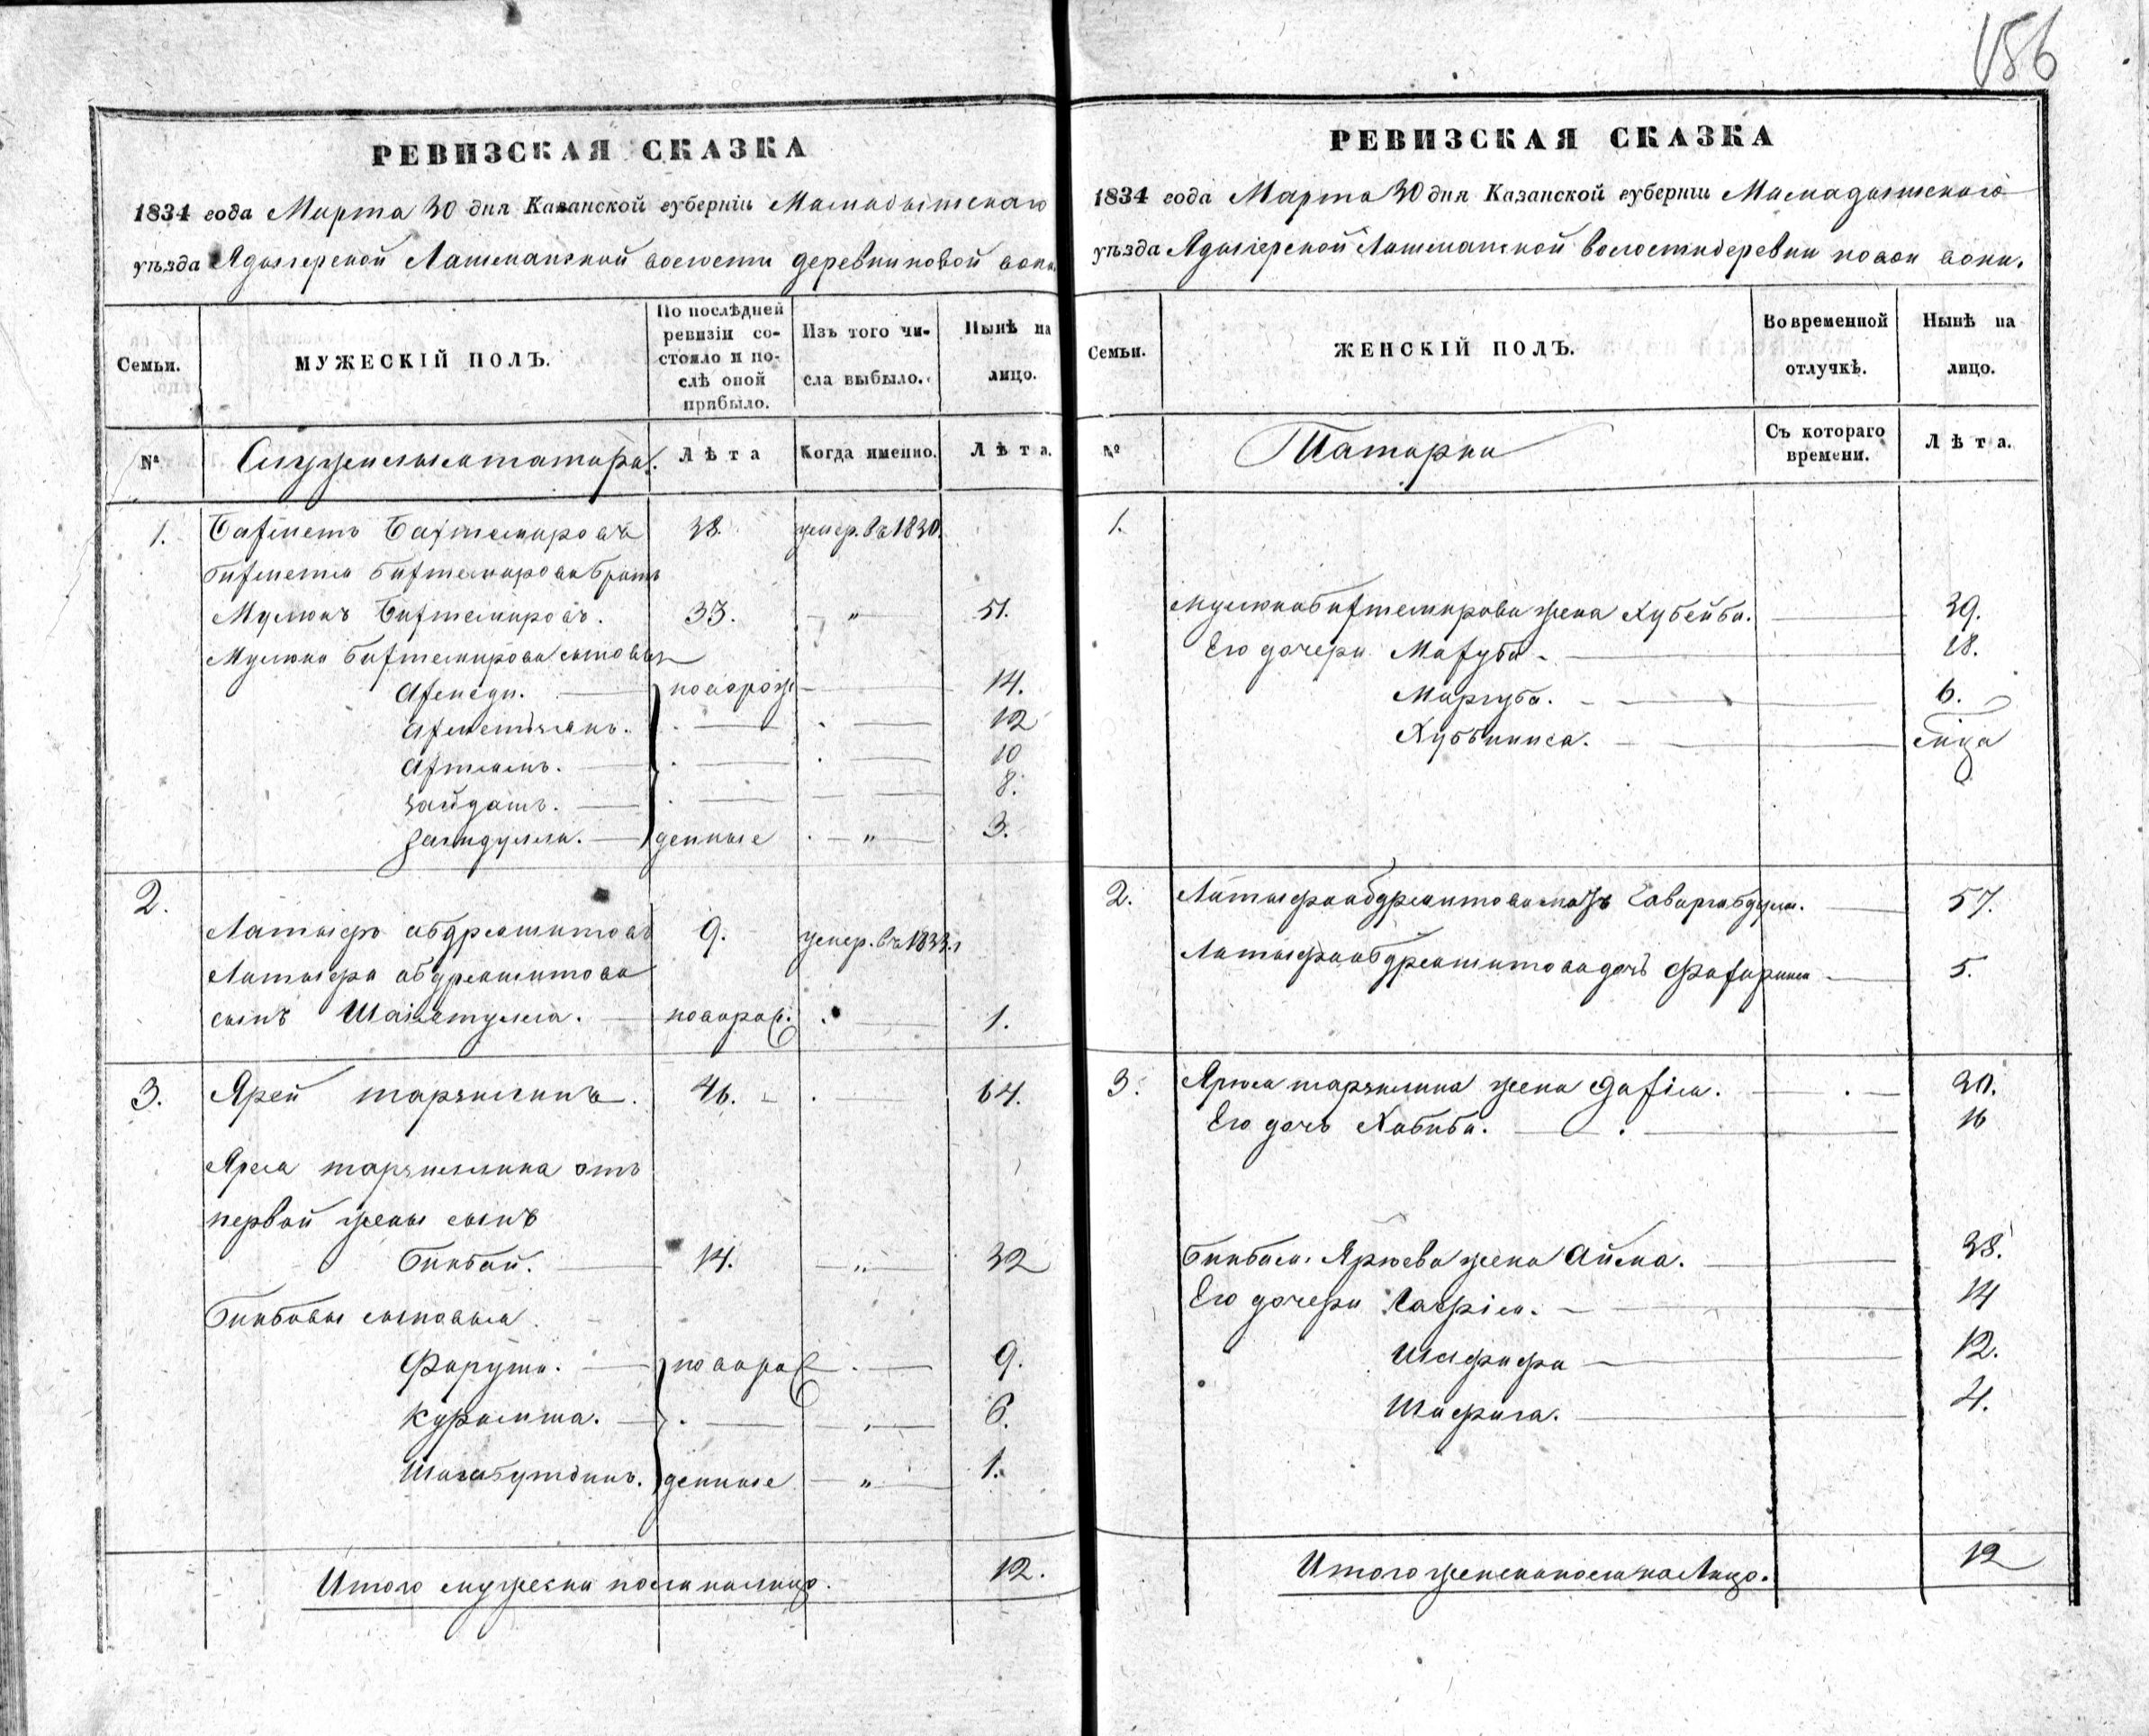 156
РЕВИЗСКАЯ СКАЗКА
1834 года Марта 30 дня Казанской губерніи Мамадышскаго
уѣзда Лашманской волости деревни новой
Семьи.
МУЖЕСКІЙ ПОЛЪ.
По послѣдней ревизіи состояло и послѣ оной прибыло.
Изъ того числа выбыло.
Нынѣ на лицо.
№
Служилыя татара.
Лѣта
Когда именно.
Лѣта.
1. Бахметь Бахтемировъ 38. умер. въ 1830.
Бахметя Бахтемирова братъ
Мулюкъ Бахтемировъ. 33. — „ — 51.
Мулюка Бахтемирова сыновья
Ахмеди. — новорож — 14.
Ахметчанъ. — 12
Ахтямъ. — 10
Зайдатъ. — 8.
Замдулла. — денные . — „ — 3.
2.
Латыфъ абдряшитовъ 9. умер. въ 1833.
Латыфа абдряшитова
сынъ Шаіахтулла. — новорож. — 1.
3. Ярей тарчилинъ. 46. — 64.
Ярея тарчилина отъ
первой жены сынъ
Бикбай. — 14. — „ — 32
Бикбавы сыновья.
Фарухи. — новорож — 9.
Курамша. — 6.
Шагабутдинъ. денные — „ — 1.
Итого мужеска пола налицо. 12.
РЕВИЗСКАЯ СКАЗКА
1834 года Марта 30 дня Казанской губерніи Мамадышскаго
уѣзда Лашманской волости деревни новой
Семьи.
ЖЕНСКІЙ ПОЛЪ.
Во временной отлучкѣ.
Нынѣ на лицо.
№
Татарки
Съ котораго времени.
Лѣта.
1.
Мулюка Бахтемирова жена Хубейба. — 39.
Его дочери Махуба — 18.
Маргуба. — 6.
Хуббиниса. —
2. Латыфа абдряшитова мать — 57.
Латыфа абдряшитова дочь — 5.
3. Ярея тарчилина жена — 30.
Его дочь Хабиба. — 16
Бикбая Яреева жена Айша. — 38.
Его дочери Сафія. — 14
Шафифа — 12.
Шафига. — 4.
Итого женска пола на Лицо. 12